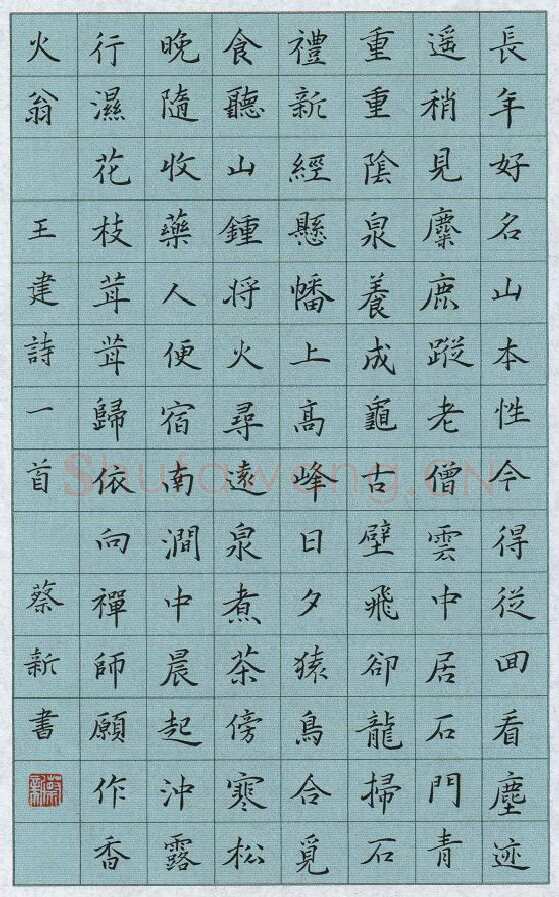 長年好名山本性今得從回看塵迹
遥稍見麋鹿蹤老僧雲中居石門青
重重陰泉養成龜古壁飛卻龍掃石
禮新經懸幡上高峰日夕猿鳥合覓
食聽山鍾将火尋遠泉煮茶傍寒松
晚隨收藥人便宿南澗中晨起沖露
行濕花枝茸茸歸依向禪師願作香
火翁 王建詩一首 蔡新書
Shufawang.CN